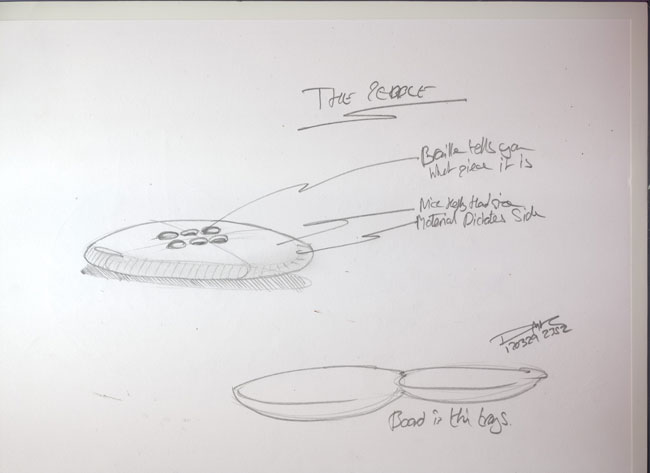 THE PEBBLE
Braille tells you
what piece it is
Nice Hand size
Material Dictates Side
120329 2252
Board is thin trays.